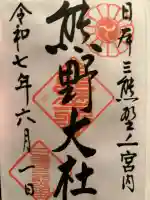 日本三熊野之宮内
熊野大社
令和七年六月一日